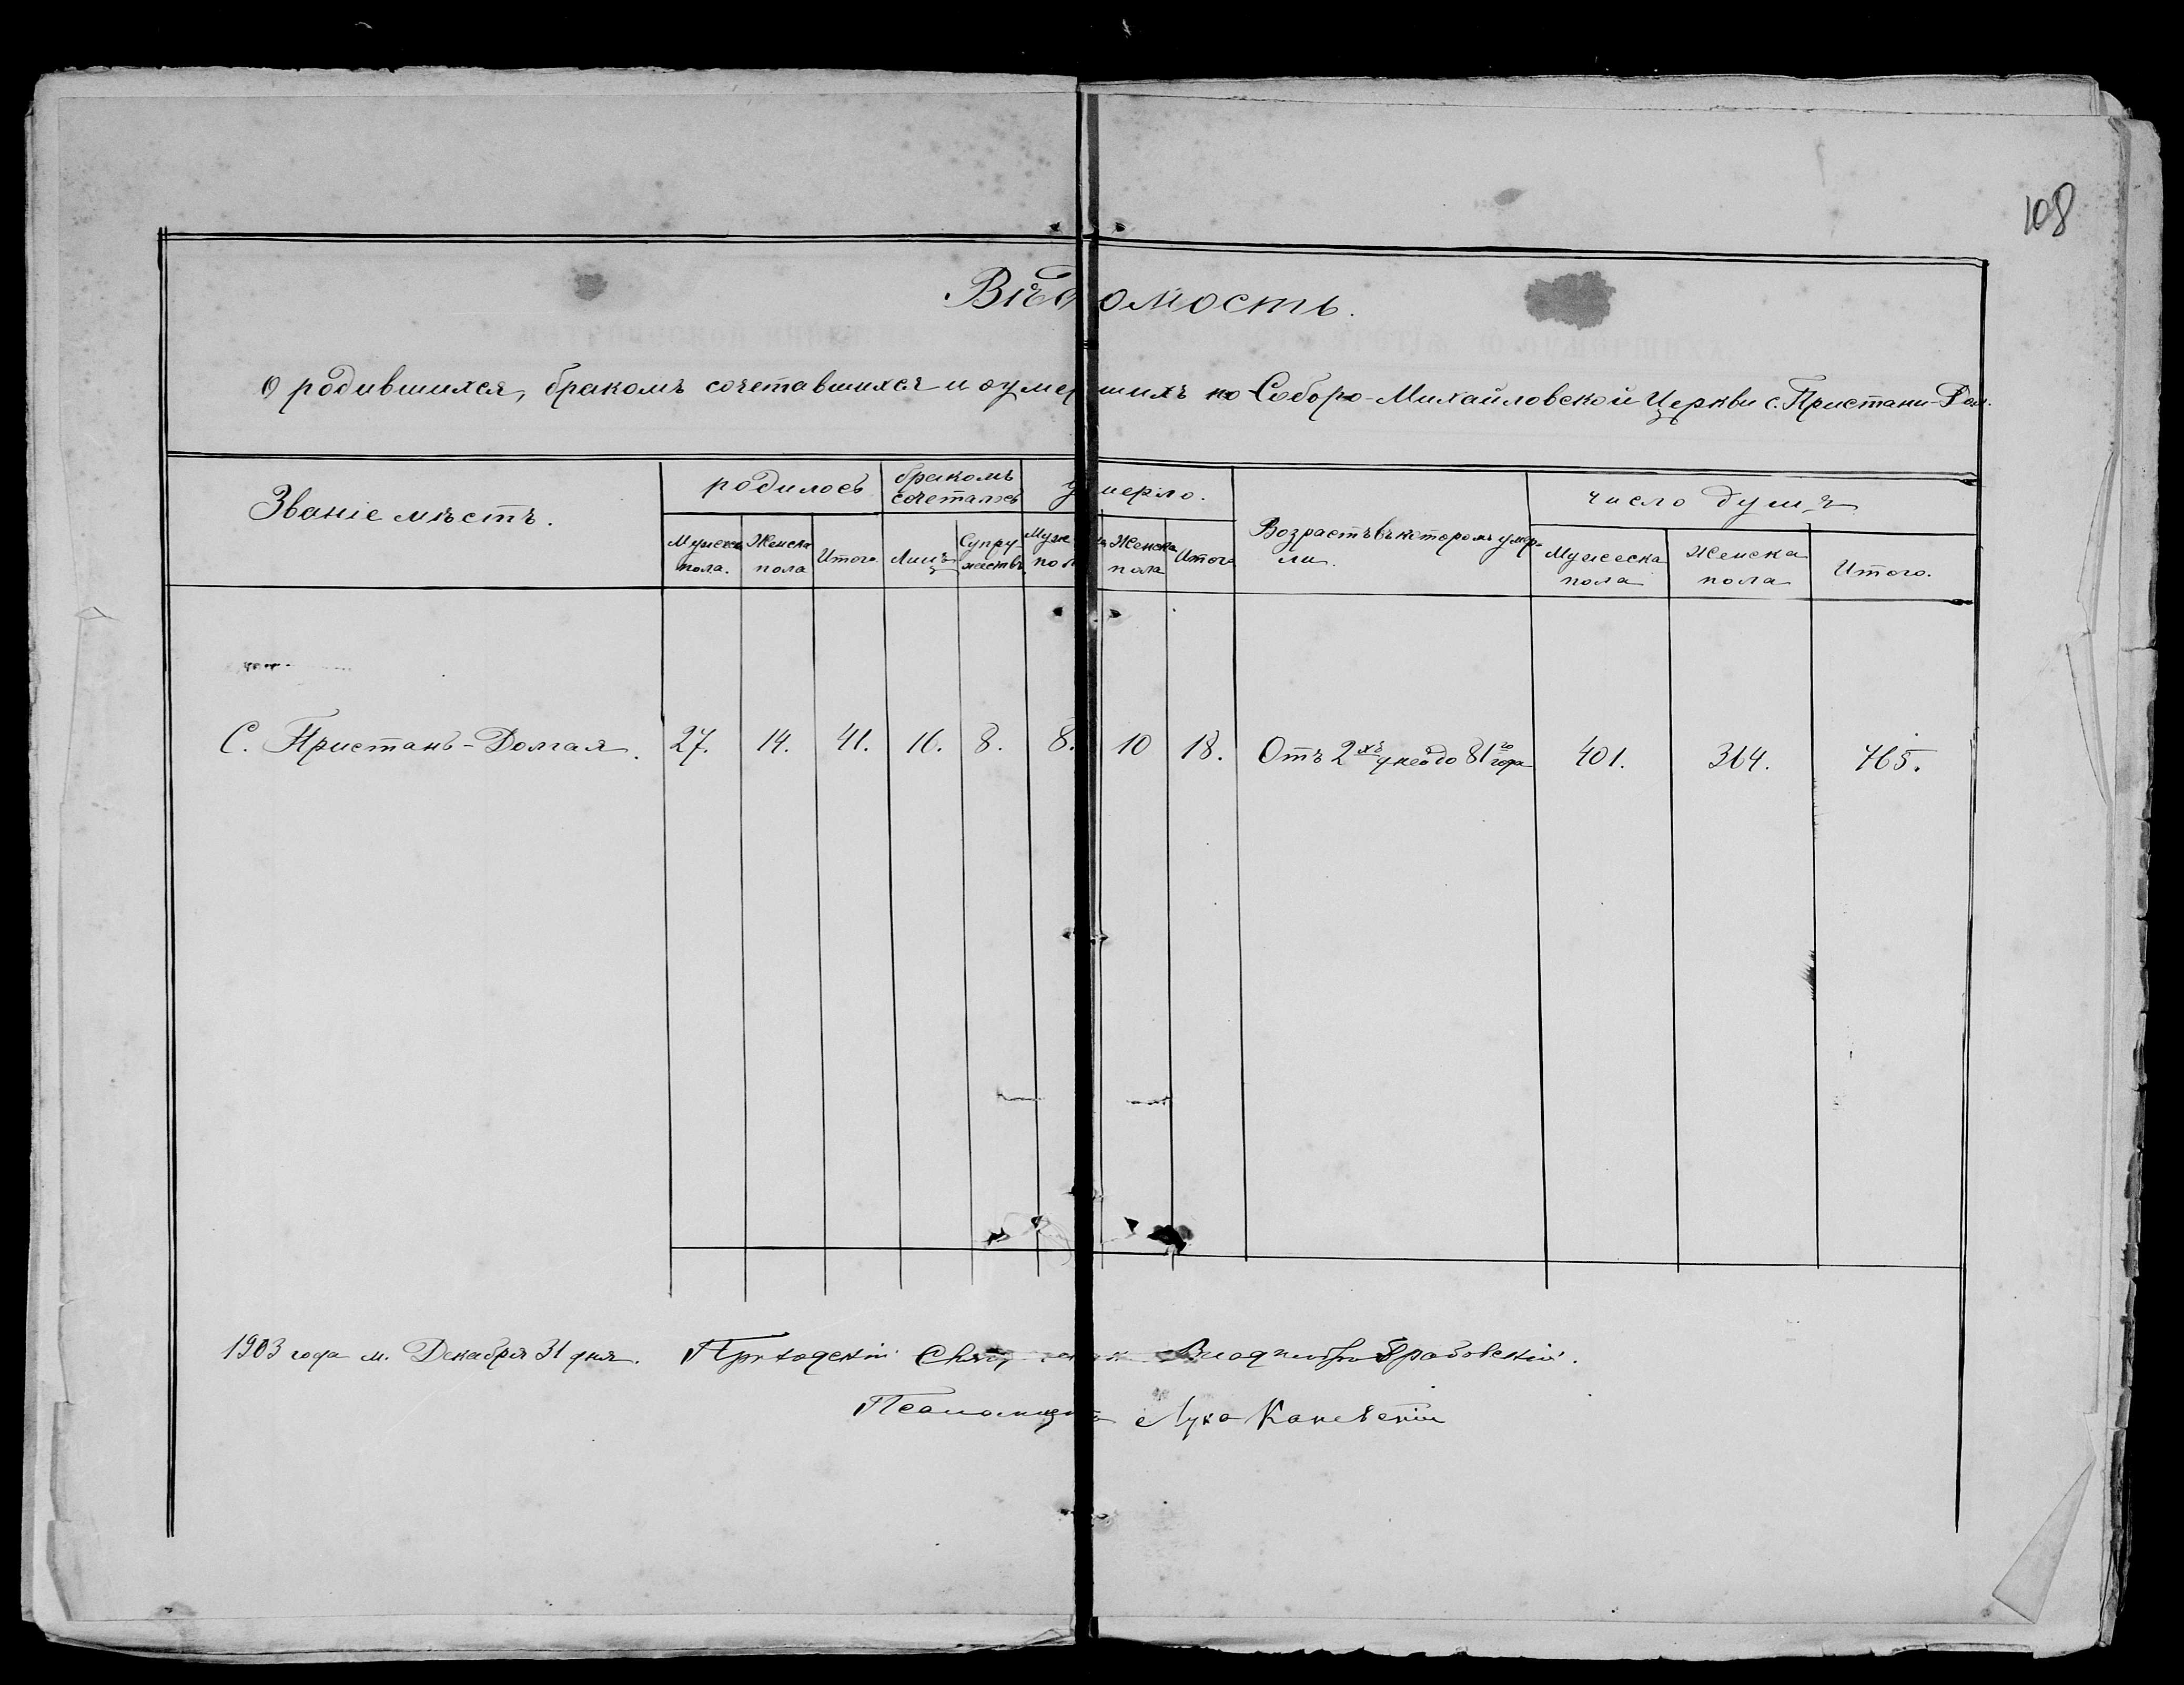 108
Вѣдомость.
О родившихся, бракомъ сочетавшихся и умершихъ по Соборо-Михайловской Церкви с. Пристани-
Званіе мѣстъ.
родилось
бракомъ сочеталось
умерло.
Возрастъ въ которомъ умерли.
число душъ
Мужеска пола.
Женска пола
Итого
Лицъ
Супружествъ
Мужеска пола
Женска пола
Итого
Мужеска пола
Женска пола
Итого.
С. Пристань-Долгая. 27. 14. 41. 16. 8. 8. 10 18. Отъ 2хъ дней до 81го года 401. 364. 765.
1903 года м. Декабря 31 дня. Приходскій Священникъ Владиміръ Грабовскій.
Псаломщикъ Лука Каневскій